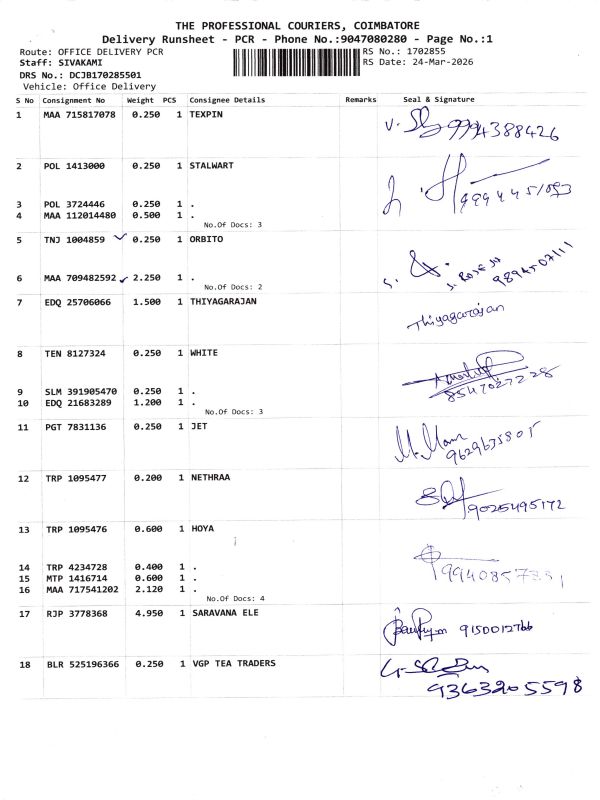 THE PROFESSIONAL COURIERS, COIMBATORE
Delivery Runsheet - PCR - Phone No.:9047080280 - Page No.:1
Route: OFFICE DELIVERY PCR RS No.: 1702855
Staff: SIVAKAMI RS Date: 24-Mar-2026
DRS No.: DCJB170285501
Vehicle: Office Delivery
S No Consignment No Weight PCS Consignee Details Remarks Seal & Signature
1 MAA 715817078 0.250 1 TEXPIN 9994388426
2 POL 1413000 0.250 1 STALWART
3 POL 3724446 0.250 1 .
4 MAA 112014480 0.500 1 .
No.Of Docs: 3
5 TNJ 1004859 0.250 1 ORBITO
6 MAA 709482592 2.250 1 .
No.Of Docs: 2
7 EDQ 25706066 1.500 1 THIYAGARAJAN Thiyagarajan
8 TEN 8127324 0.250 1 WHITE
8547027228
9 SLM 391905470 0.250 1 .
10 EDQ 21683289 1.200 1 .
No.Of Docs: 3
11 PGT 7831136 0.250 1 JET
9629635805
12 TRP 1095477 0.200 1 NETHRAA
9025495172
13 TRP 1095476 0.600 1 HOYA
14 TRP 4234728 0.400 1 .
15 MTP 1416714 0.600 1 .
16 MAA 717541202 2.120 1 .
No.Of Docs: 4
17 RJP 3778368 4.950 1 SARAVANA ELE
9150012766
18 BLR 525196366 0.250 1 VGP TEA TRADERS
9363205598